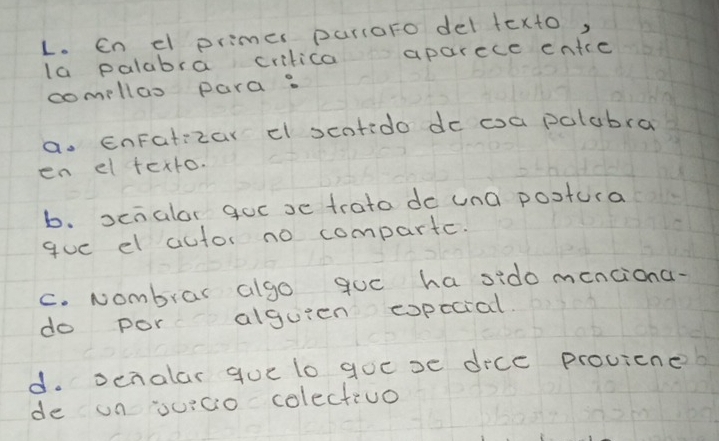 1. En el primer parrafo del texto,
la palabra critica aparece entre
comillas para:
a. Enfatizar el sentido de esa palabra
en el texto.
b. señalar que se trata de una postura
que el autor no comparte.
c. Nombrar algo que ha sido menciona-
do por alguien especial.
d. señalar que lo que se dice proviene
de un juicio colectivo